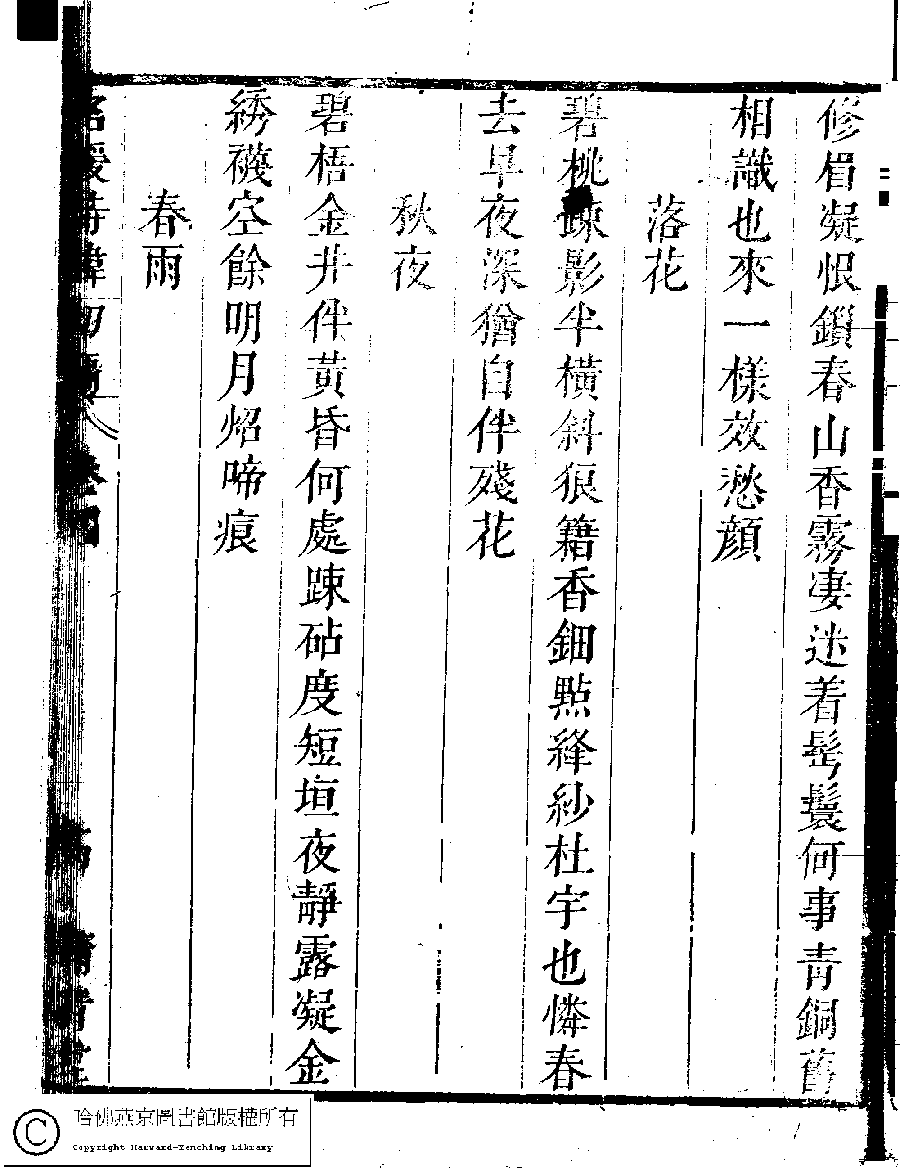 修眉凝恨鎖春山香霧凄迷着髩鬟何事青銅舊
相識也來一樣效愁顔
落花
碧桃踈影半橫斜狼籍香鈿點絳紗杜宇也憐春
去早夜深猶自伴殘花
秋夜
碧梧金井伴黃昏何處踈砧度短垣夜靜露凝金
綉襪空餘明月炤啼痕
春雨
名媛詩緯初編
哈佛燕京圖書館版權所有
Copyright Harvard-Yenching Library